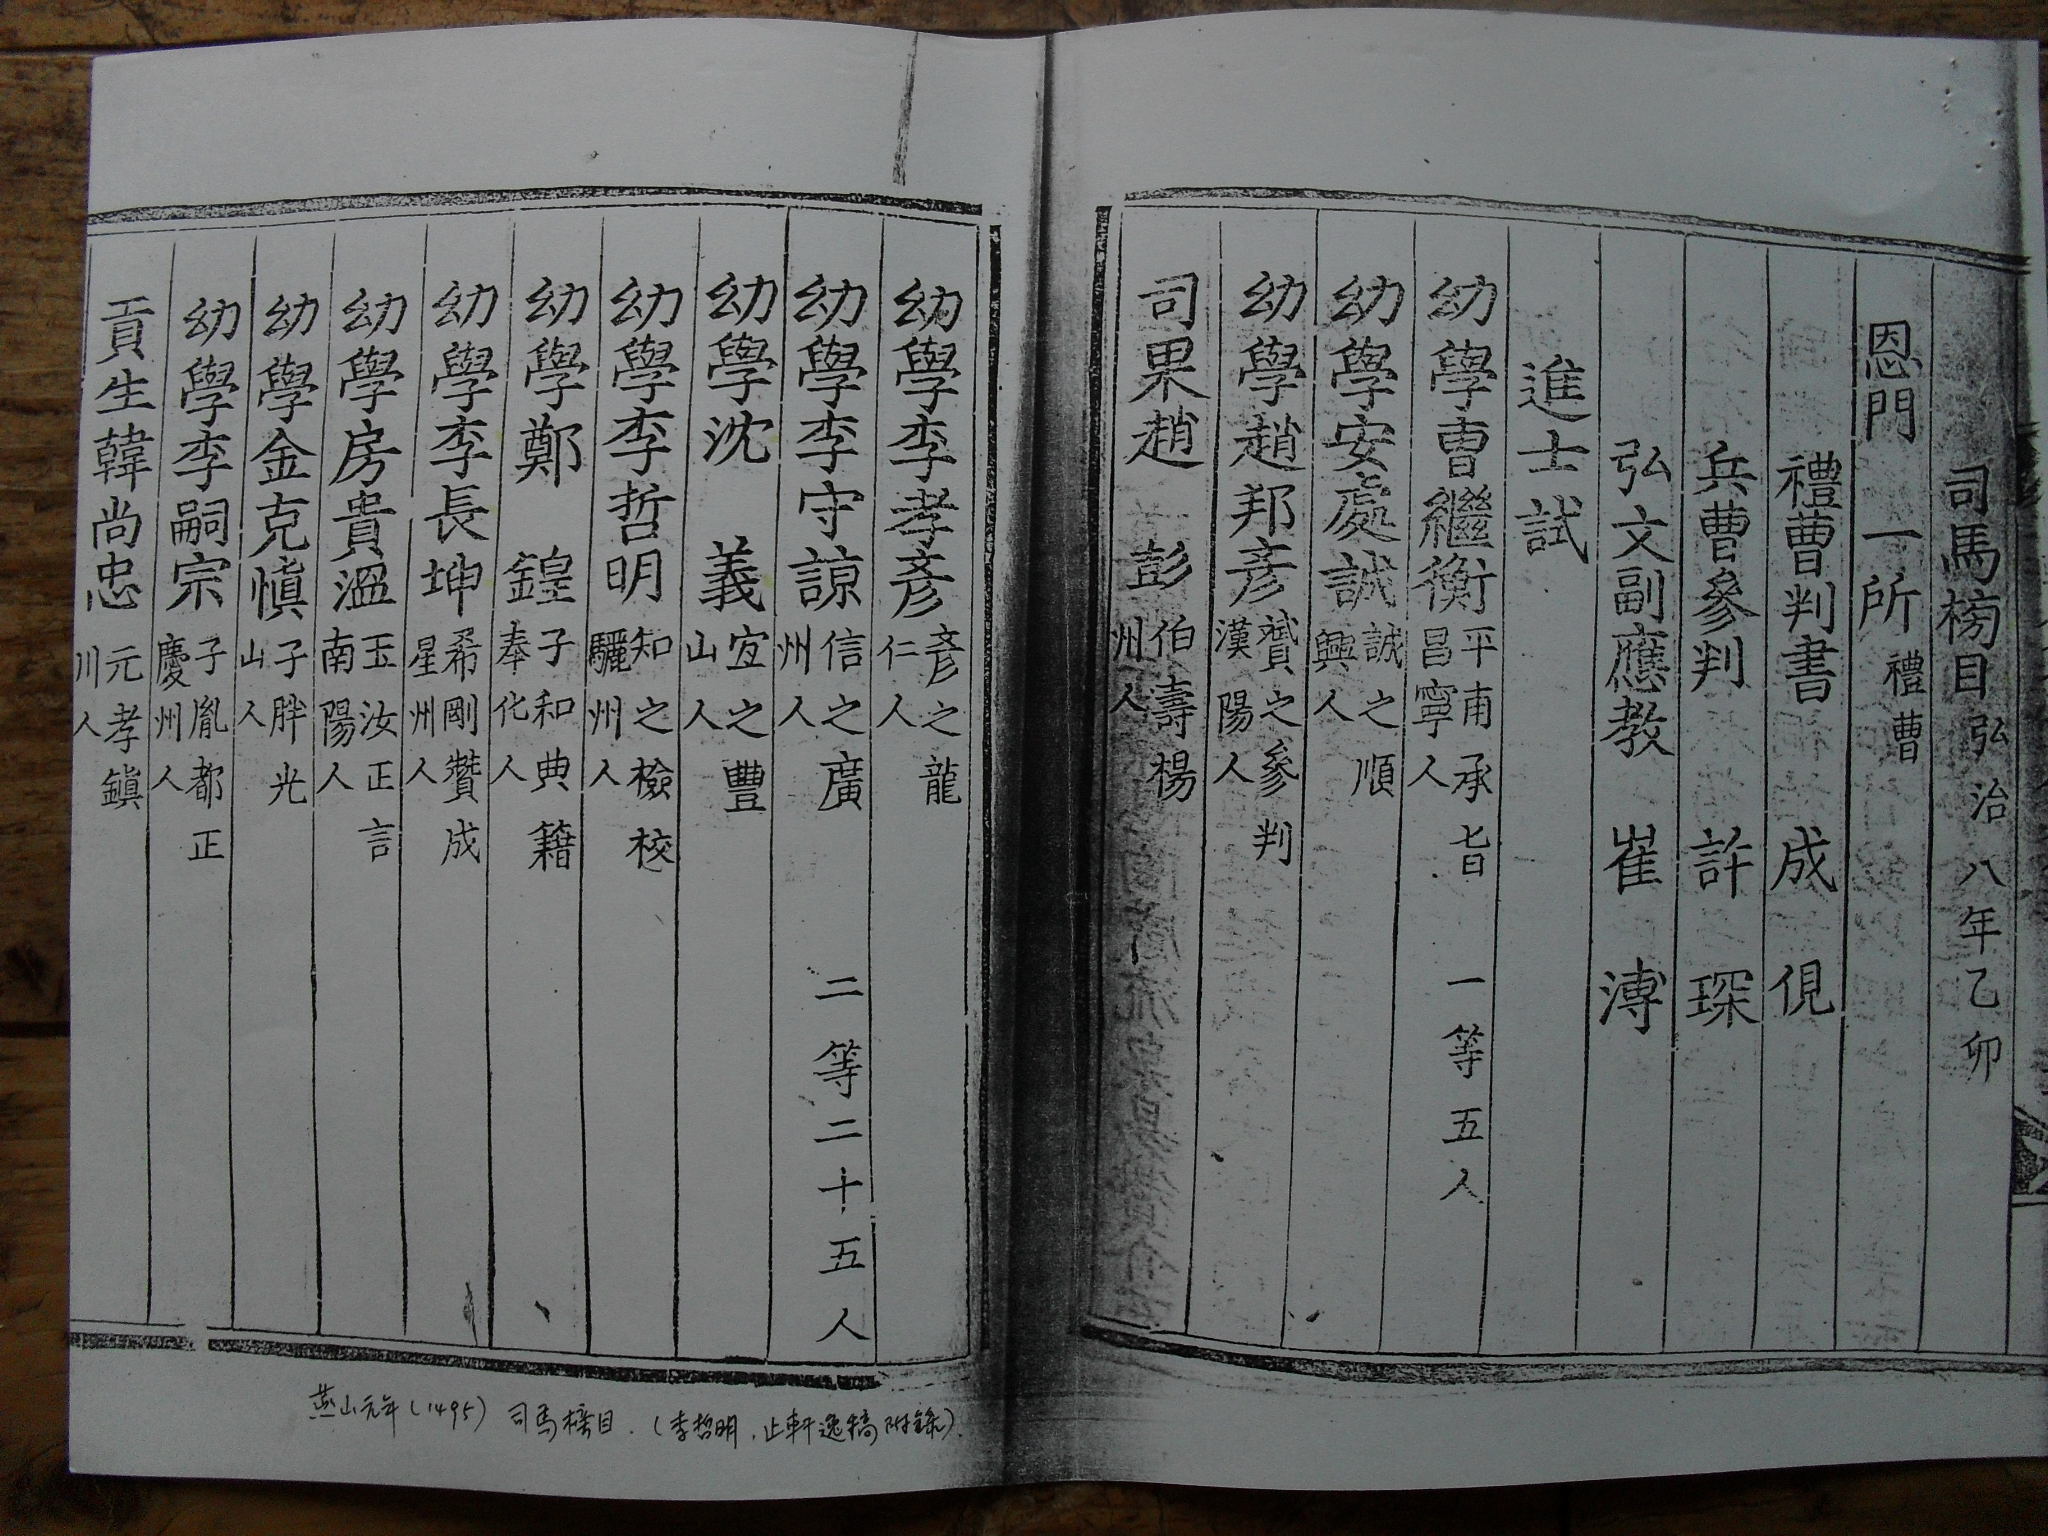 司馬榜目 弘治八年乙卯
恩門 一所 禮曹
禮曹判書 成俔
兵曹參判 許琛
弘文副應教 崔溥
進士試
幼學曺繼衡 平甫承旨 昌寧人 一等五人
幼學安處誠 誠之順興人
幼學趙邦彦 贇之參判 漢陽人
司果趙 彭 伯壽楊州人
幼學李孝彦 彦之龍仁人
幼學李守諒 信之廣州人 二等二十五人
幼學沈 義 宜之豐山人
幼學李哲明 知之檢校 驪州人
幼學鄭 鍠 子和典籍 奉化人
幼學李長坤 希剛贊成 星州人
幼學房貴溫 玉汝正言 南陽人
幼學金克愼 子胖光山人
幼學李嗣宗 子胤都正 慶州人
貢生韓尚忠 元孝鎭川人
燕山元年(1495) 司馬榜目. (李哲明, 止軒逸稿附錄).